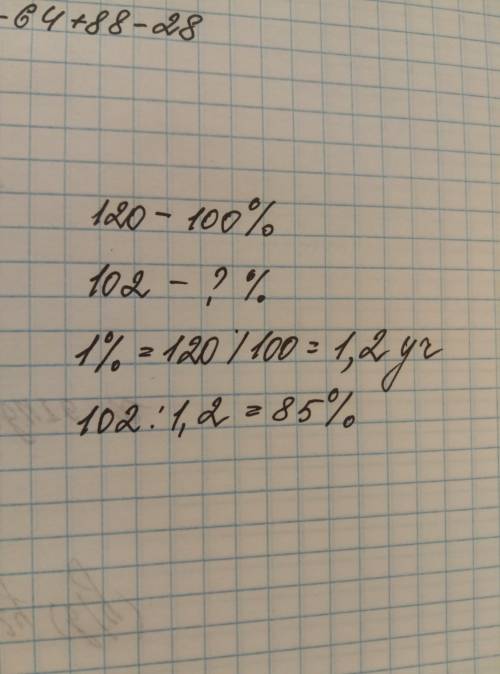 -64+88-28
120 - 100%
102 - ? %
1% = 120 / 100 = 1,2 уч
102 : 1,2 = 85%